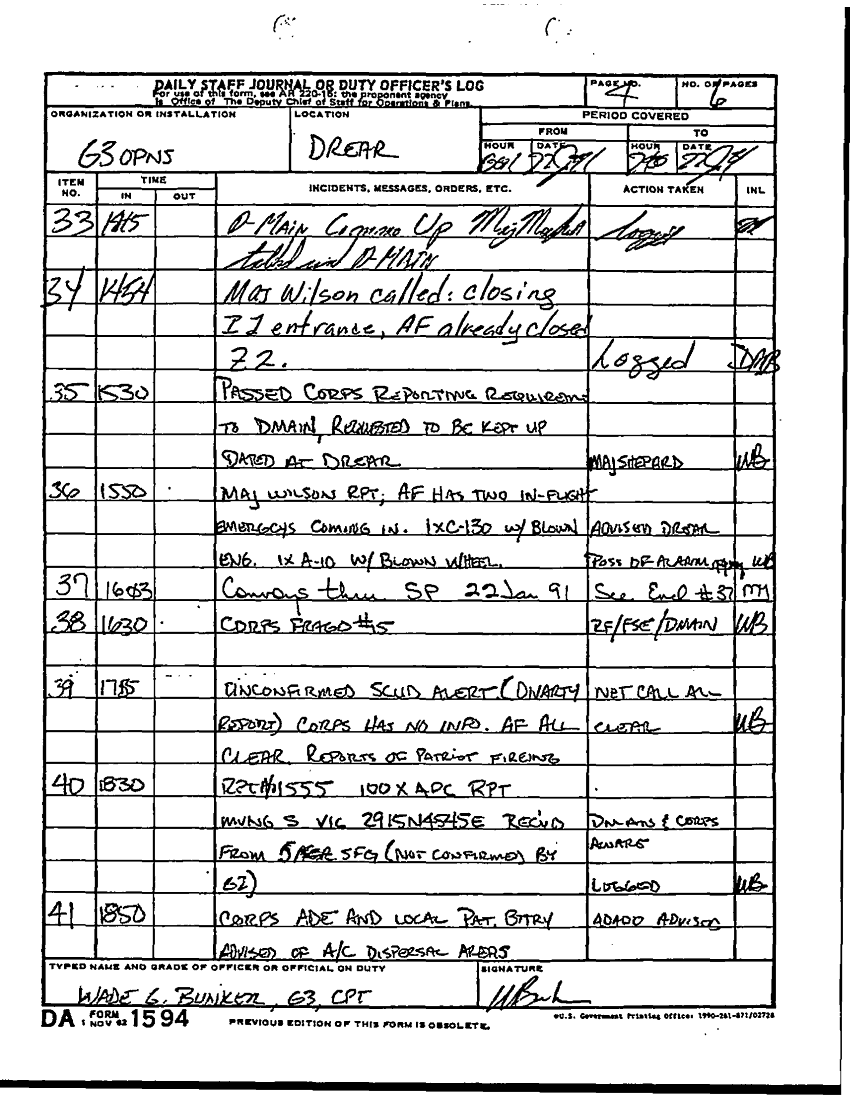 DAILY STAFF JOURNAL OR DUTY OFFICER'S LOG
For use of this form, see AR 220-15; the proponent agency
is Office of The Deputy Chief of Staff for Operations & Plans.
PAGE NO.
4
NO. OF PAGES
6
ORGANIZATION OR INSTALLATION
G3 OPNS
LOCATION
DREAR
PERIOD COVERED
FROM
TO
HOUR
0001
DATE
HOUR
DATE
ITEM NO.
TIME
IN
OUT
INCIDENTS, MESSAGES, ORDERS, ETC.
ACTION TAKEN
INL
33 D-MAIN Commo Up Maj
D-MAIN
34 1454 Maj Wilson called: closing
entrance, AF already closed
Z2. Logged DMB
35 1530 PASSED CORPS REPORTING REQUIREM
TO DMAIN, REQUESTED TO BE KEPT UP
DATED AT DREAR MAJ SHEPARD WB
36 1550 MAJ WILSON RPT; AF HAS TWO IN-FLIGHT
EMERGCYS COMING IN. 1XC-130 W/ BLOWN ADVISED DREAR
ENG. 1X A-10 W/ BLOWN WHEEL. POSS OF ALARM WB
37 1603 Convoys thru SP 22 Jan 91 See Encl #37
38 1630 CORPS FRAGO #15 RF/FSE/DMAIN WB
39 UNCONFIRMED SCUD ALERT. (DIVARTY NET CALL ALL
REPORT) CORPS HAS NO INFO. AF ALL CLEAR WB
CLEAR. REPORTS OF PATRIOT FIREING
40 1830 1555 100 X APC RPT
MVNG S VIC 2915N4545E RECVD DMAIN & CORPS
FROM SFG (NOT CONFIRMED) BY AWARE
G2) LOGGED WB
41 1850 CORPS ADE AND LOCAL PAT. BTRY ADADO ADVISED
ADVISED OF A/C DISPERSAL ALERS
TYPED NAME AND GRADE OF OFFICER OR OFFICIAL ON DUTY
WADE G. BUNKER, G3, CPT
SIGNATURE
DA FORM 1 NOV 62 1594
PREVIOUS EDITION OF THIS FORM IS OBSOLETE.
U.S. Government Printing Office: 1990-261-871/02728